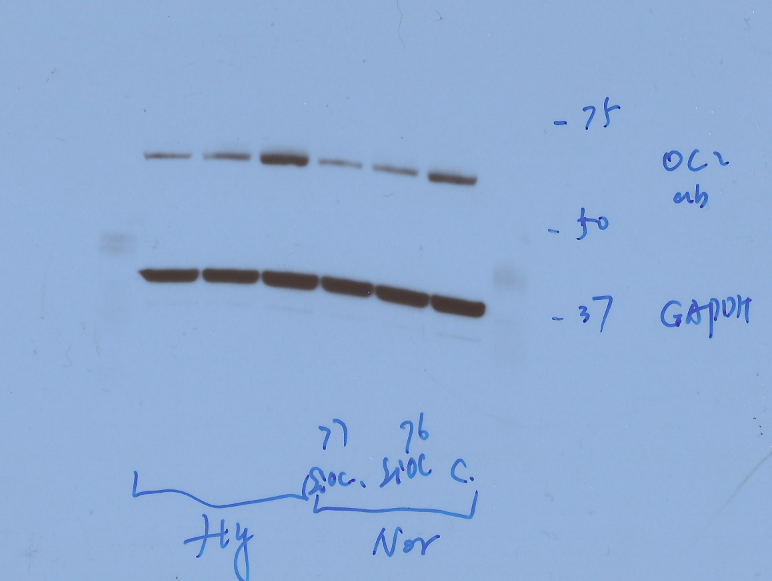 - 75
OC2
ab
- 50
- 37 GAPDH
77 76
SiOC. SiOC C.
Hy Nor